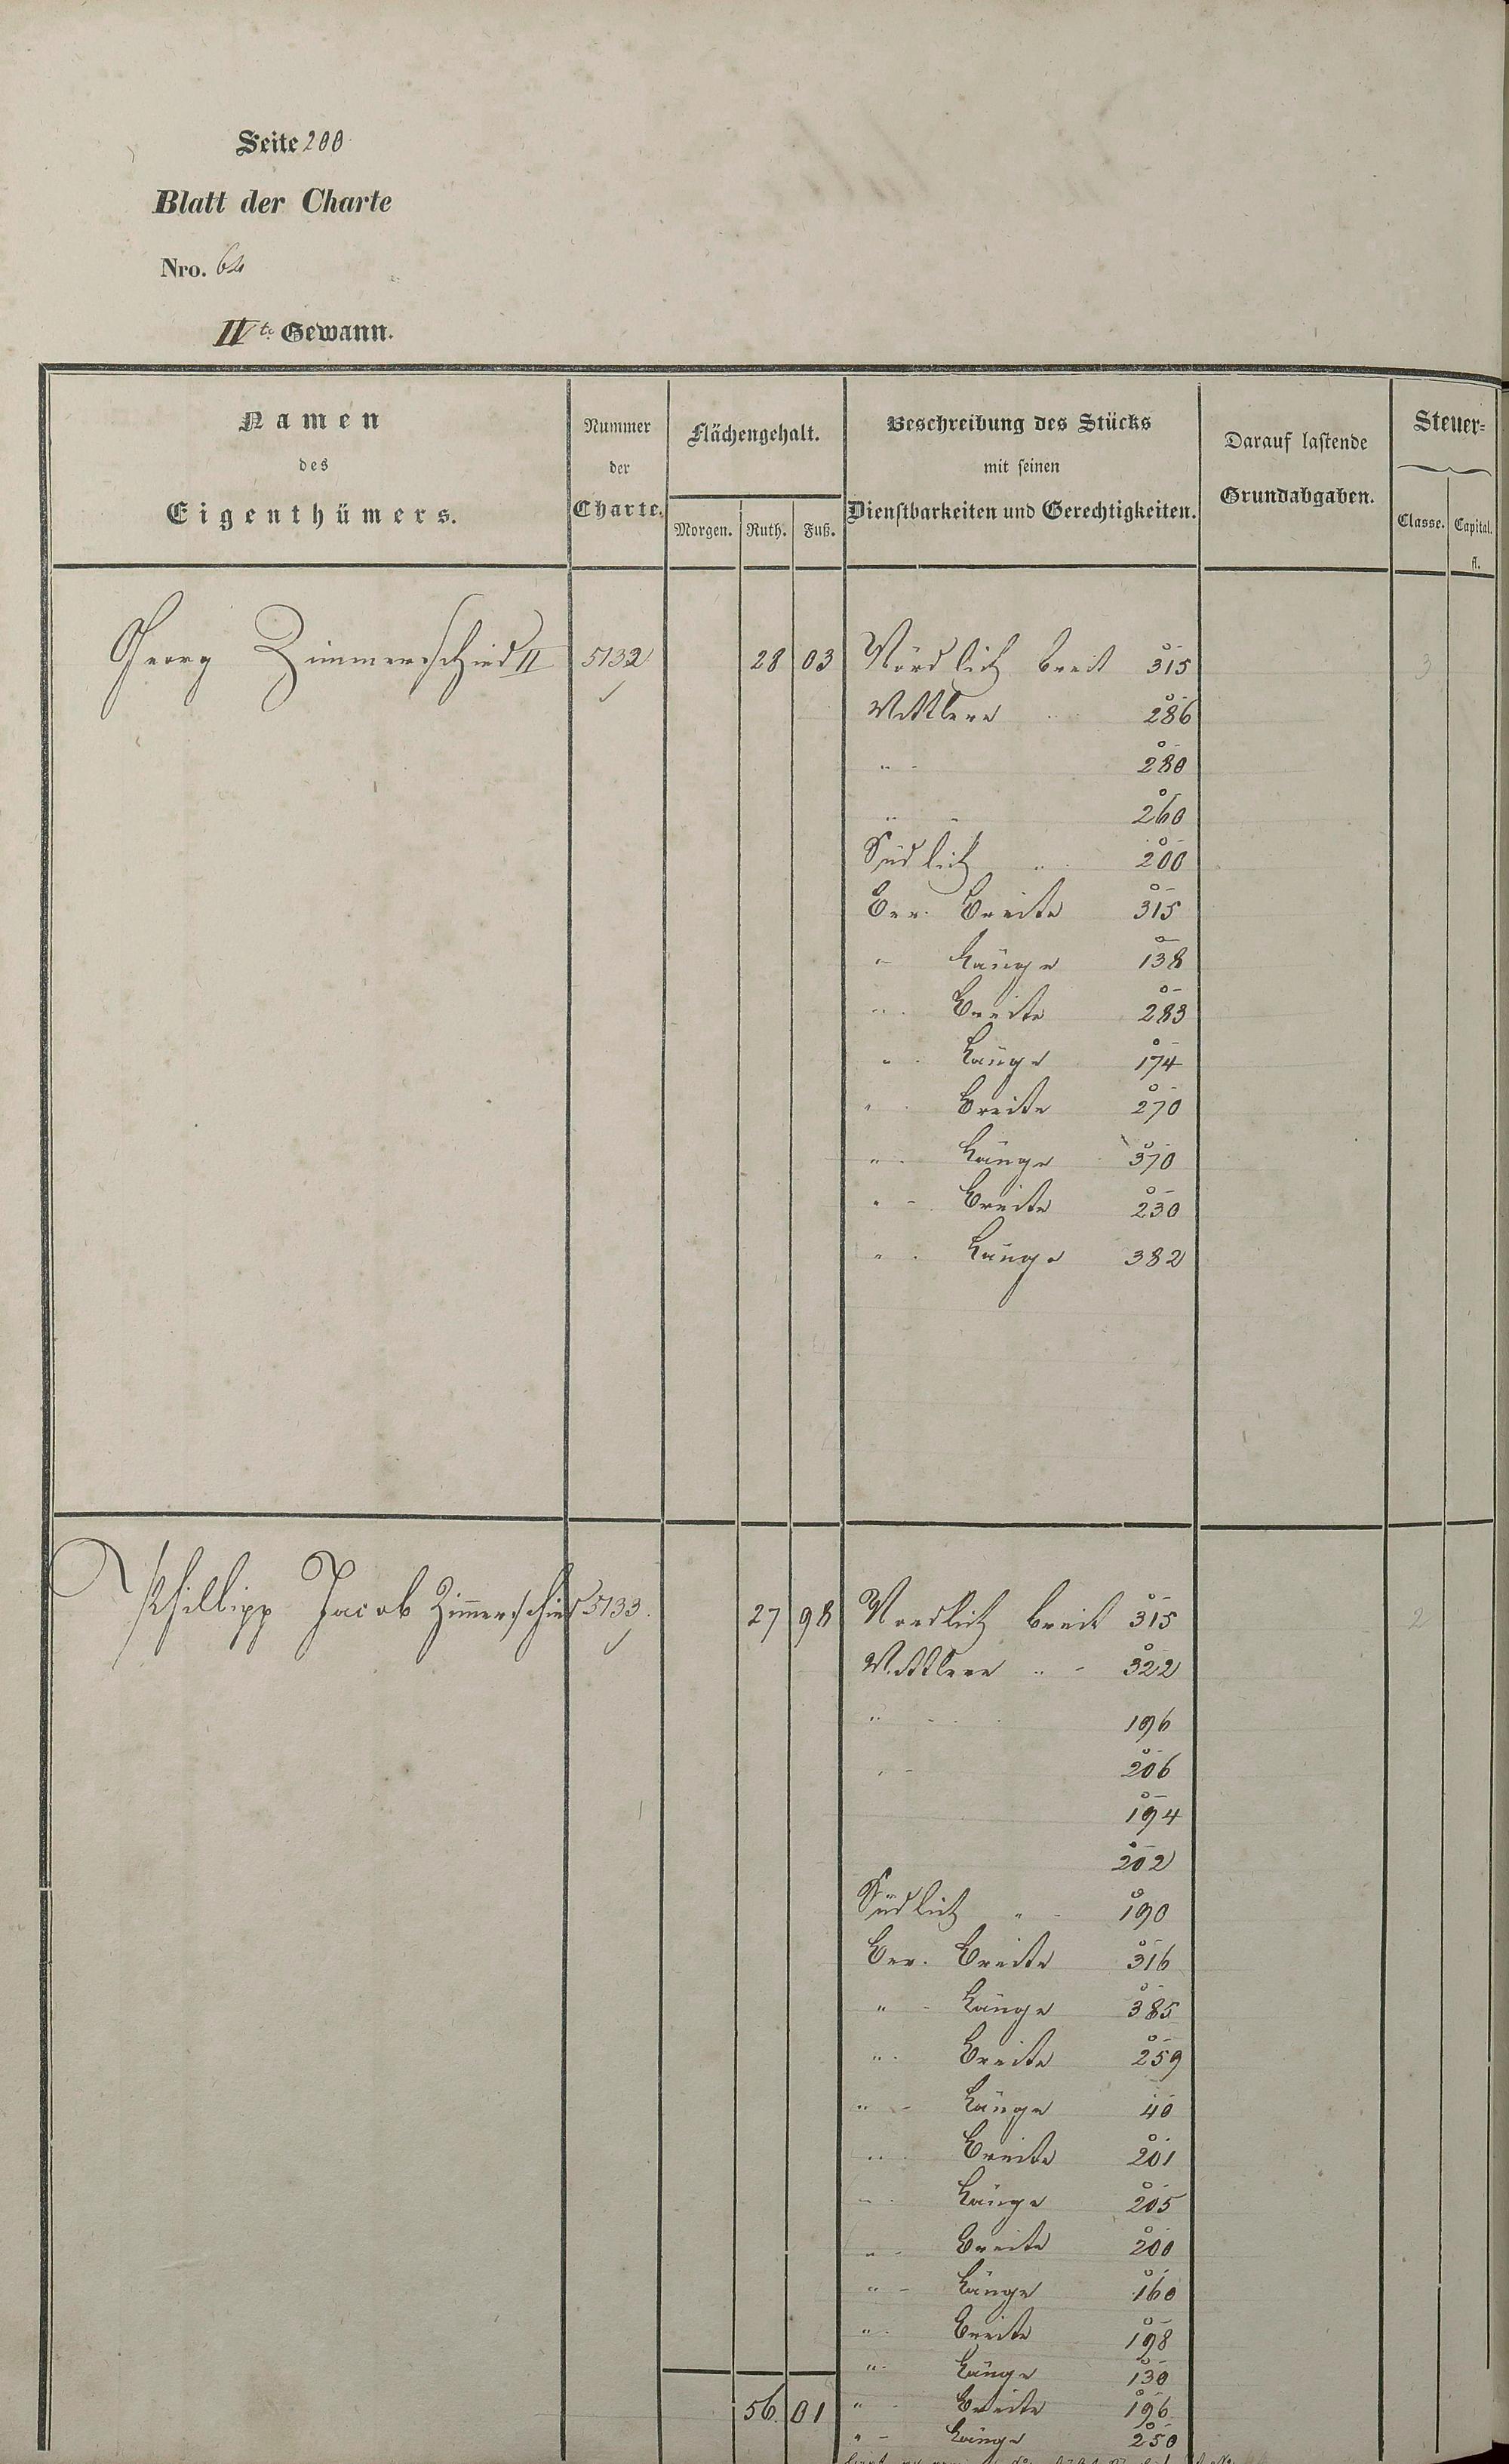 Seite 200
Blatt der Charte
Nro. 64
IVte Gewann.
Namen
des
Eigenthümers.
Nummer
der
Charte.
Flächengehalt.
Morgen. Ruth. Fuß.
Beschreibung des Stücks
mit seinen
Dienstbarkeiten und Gerechtigkeiten.
Darauf lastende
Grundabgaben.
Steuer=
Classe. Capital.
fl.
Georg Zimmerschied II 5132 28 03 Nördlich breit 315 3
Mittlere " 286
" - 280
" - 260
Südlich " 200
Ber. Breite 315
" Länge 138
" Breite 283
" Länge 174
" Breite 270
" Länge 370
" Breite 230
" Länge 382
Philipp Jacob Zimmerschied 5133. 27 98 Nordlich breit 315 2
Mittlere " - 322
" - 196
" - 206
194
202
Südlich " - 190
Ber. Breite 316
" Länge 385
" Breite 259
" Länge 40
" Breite 201
" Länge 205
" Breite 200
" Länge 160
" Breite 198
" Länge 130
56. 01 " Breite 196
" Länge 250